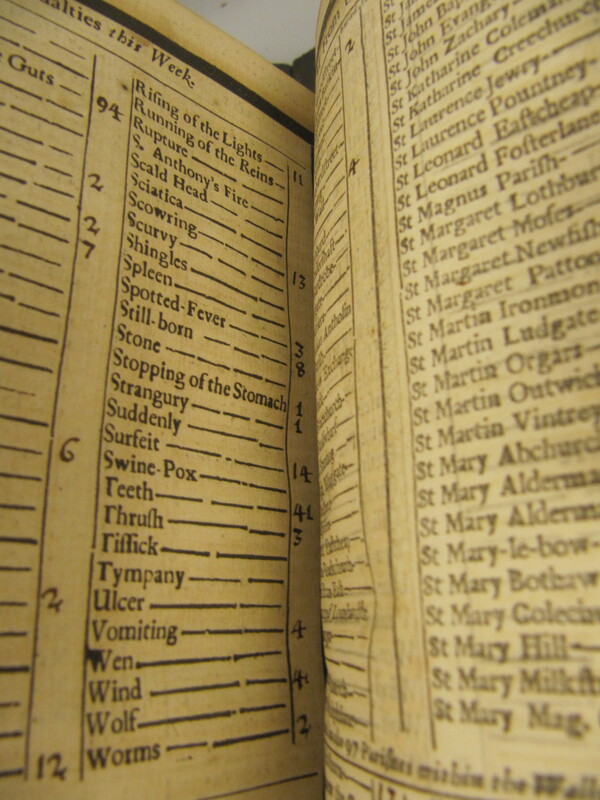 alties this Week.
Guts
94
2
2
7
6
2
12
Rising of the Lights
Running of the Reins
Rupture
S. Anthony's Fire
Scald Head
Sciatica
Scowring
Scurvy
Shingles
Spleen
Spotted-Fever
Still-born
Stone
Stopping of the Stomach
Strangury
Suddenly
Surfeit
Swine-Pox
Teeth
Thrush
Tissick
Tympany
Ulcer
Vomiting
Wen
Wind
Wolf
Worms
11
13
3
8
1
1
14
41
3
4
4
2
2
4
St John Bap
St John Evang
St John Zachary
St Katharine Coleman
St Katharine Creechurch
St Laurence Jewry
St Laurence Pountney
St Leonard Eastcheap
St Leonard Fosterlane
St Magnus Parish
St Margaret Lothbur
St Margaret Moses
St Margaret Newfish
St Margaret Patton
St Martin Ironmon
St Martin Ludgate
St Martin Orgars
St Martin Outwich
St Martin Vintrey
St Mary Abchurch
St Mary Alderma
St Mary Alderma
St Mary-le-bow
St Mary Bothaw
St Mary Colechu
St Mary Hill
St Mary Milkst
St Mary Mag.
97 Parishes within the Wall